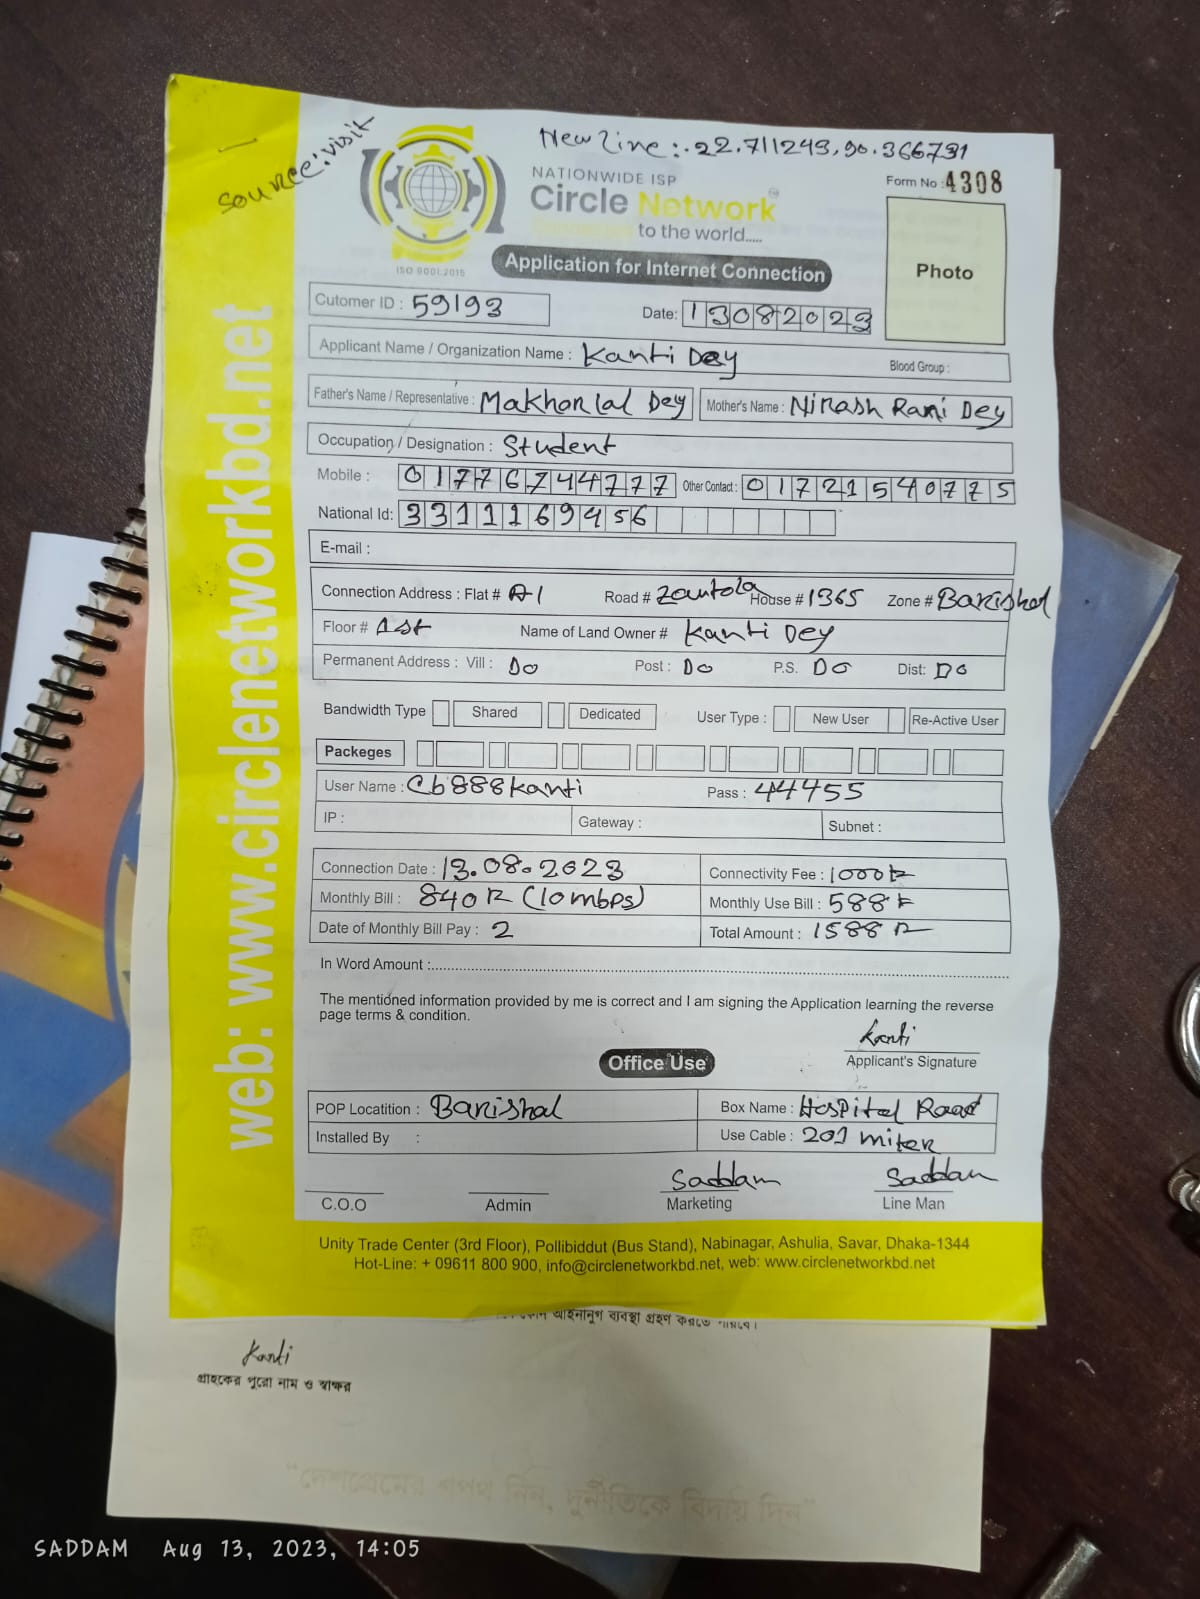 New Line: 22.711243,90.366731
Source: visit
NATIONWIDE ISP
Form No : 4308
Circle Network
to the world.....
ISO 9001:2015
Photo
Application for Internet Connection
Cutomer ID : 59193
Date: 13082023
Applicant Name / Organization Name : Kanti Dey
Blood Group :
Father's Name / Representative : Makhonlal Dey
Mother's Name : Nirash Rani Dey
Occupation / Designation : Student
Mobile : 01776744777
Other Contact : 01721540775
National Id: 3311169456
E-mail :
Connection Address : Flat # A-1 Road # Zautola House # 1365 Zone # Barishal
Floor # 1st Name of Land Owner # Kanti Dey
Permanent Address : Vill : Do Post : Do P.S. Do Dist: Do
Bandwidth Type Shared Dedicated User Type : New User Re-Active User
Packeges
User Name : Cb888kanti Pass : 44455
IP : Gateway : Subnet :
Connection Date : 13.08.2023 Connectivity Fee : 1000
Monthly Bill : 840 (10mbps) Monthly Use Bill : 588
Date of Monthly Bill Pay : 2 Total Amount : 1588
In Word Amount :
The mentioned information provided by me is correct and I am signing the Application learning the reverse
page terms & condition.
Kanti
Applicant's Signature
Office Use
POP Locatition : Barishal Box Name : Hospital Road
Installed By : Use Cable : 201 miter
Saddam Saddam
C.O.O Admin Marketing Line Man
Unity Trade Center (3rd Floor), Pollibiddut (Bus Stand), Nabinagar, Ashulia, Savar, Dhaka-1344
Hot-Line: + 09611 800 900, info@circlenetworkbd.net, web: www.circlenetworkbd.net
web: www.circlenetworkbd.net
আইনানুগ ব্যবস্থা গ্রহণ করতে
Kanti
গ্রাহকের পুরো নাম ও স্বাক্ষর
"দেশপ্রেমের শপথ নিন, দুর্নীতিকে বিদায় দিন"
SADDAM Aug 13, 2023, 14:05